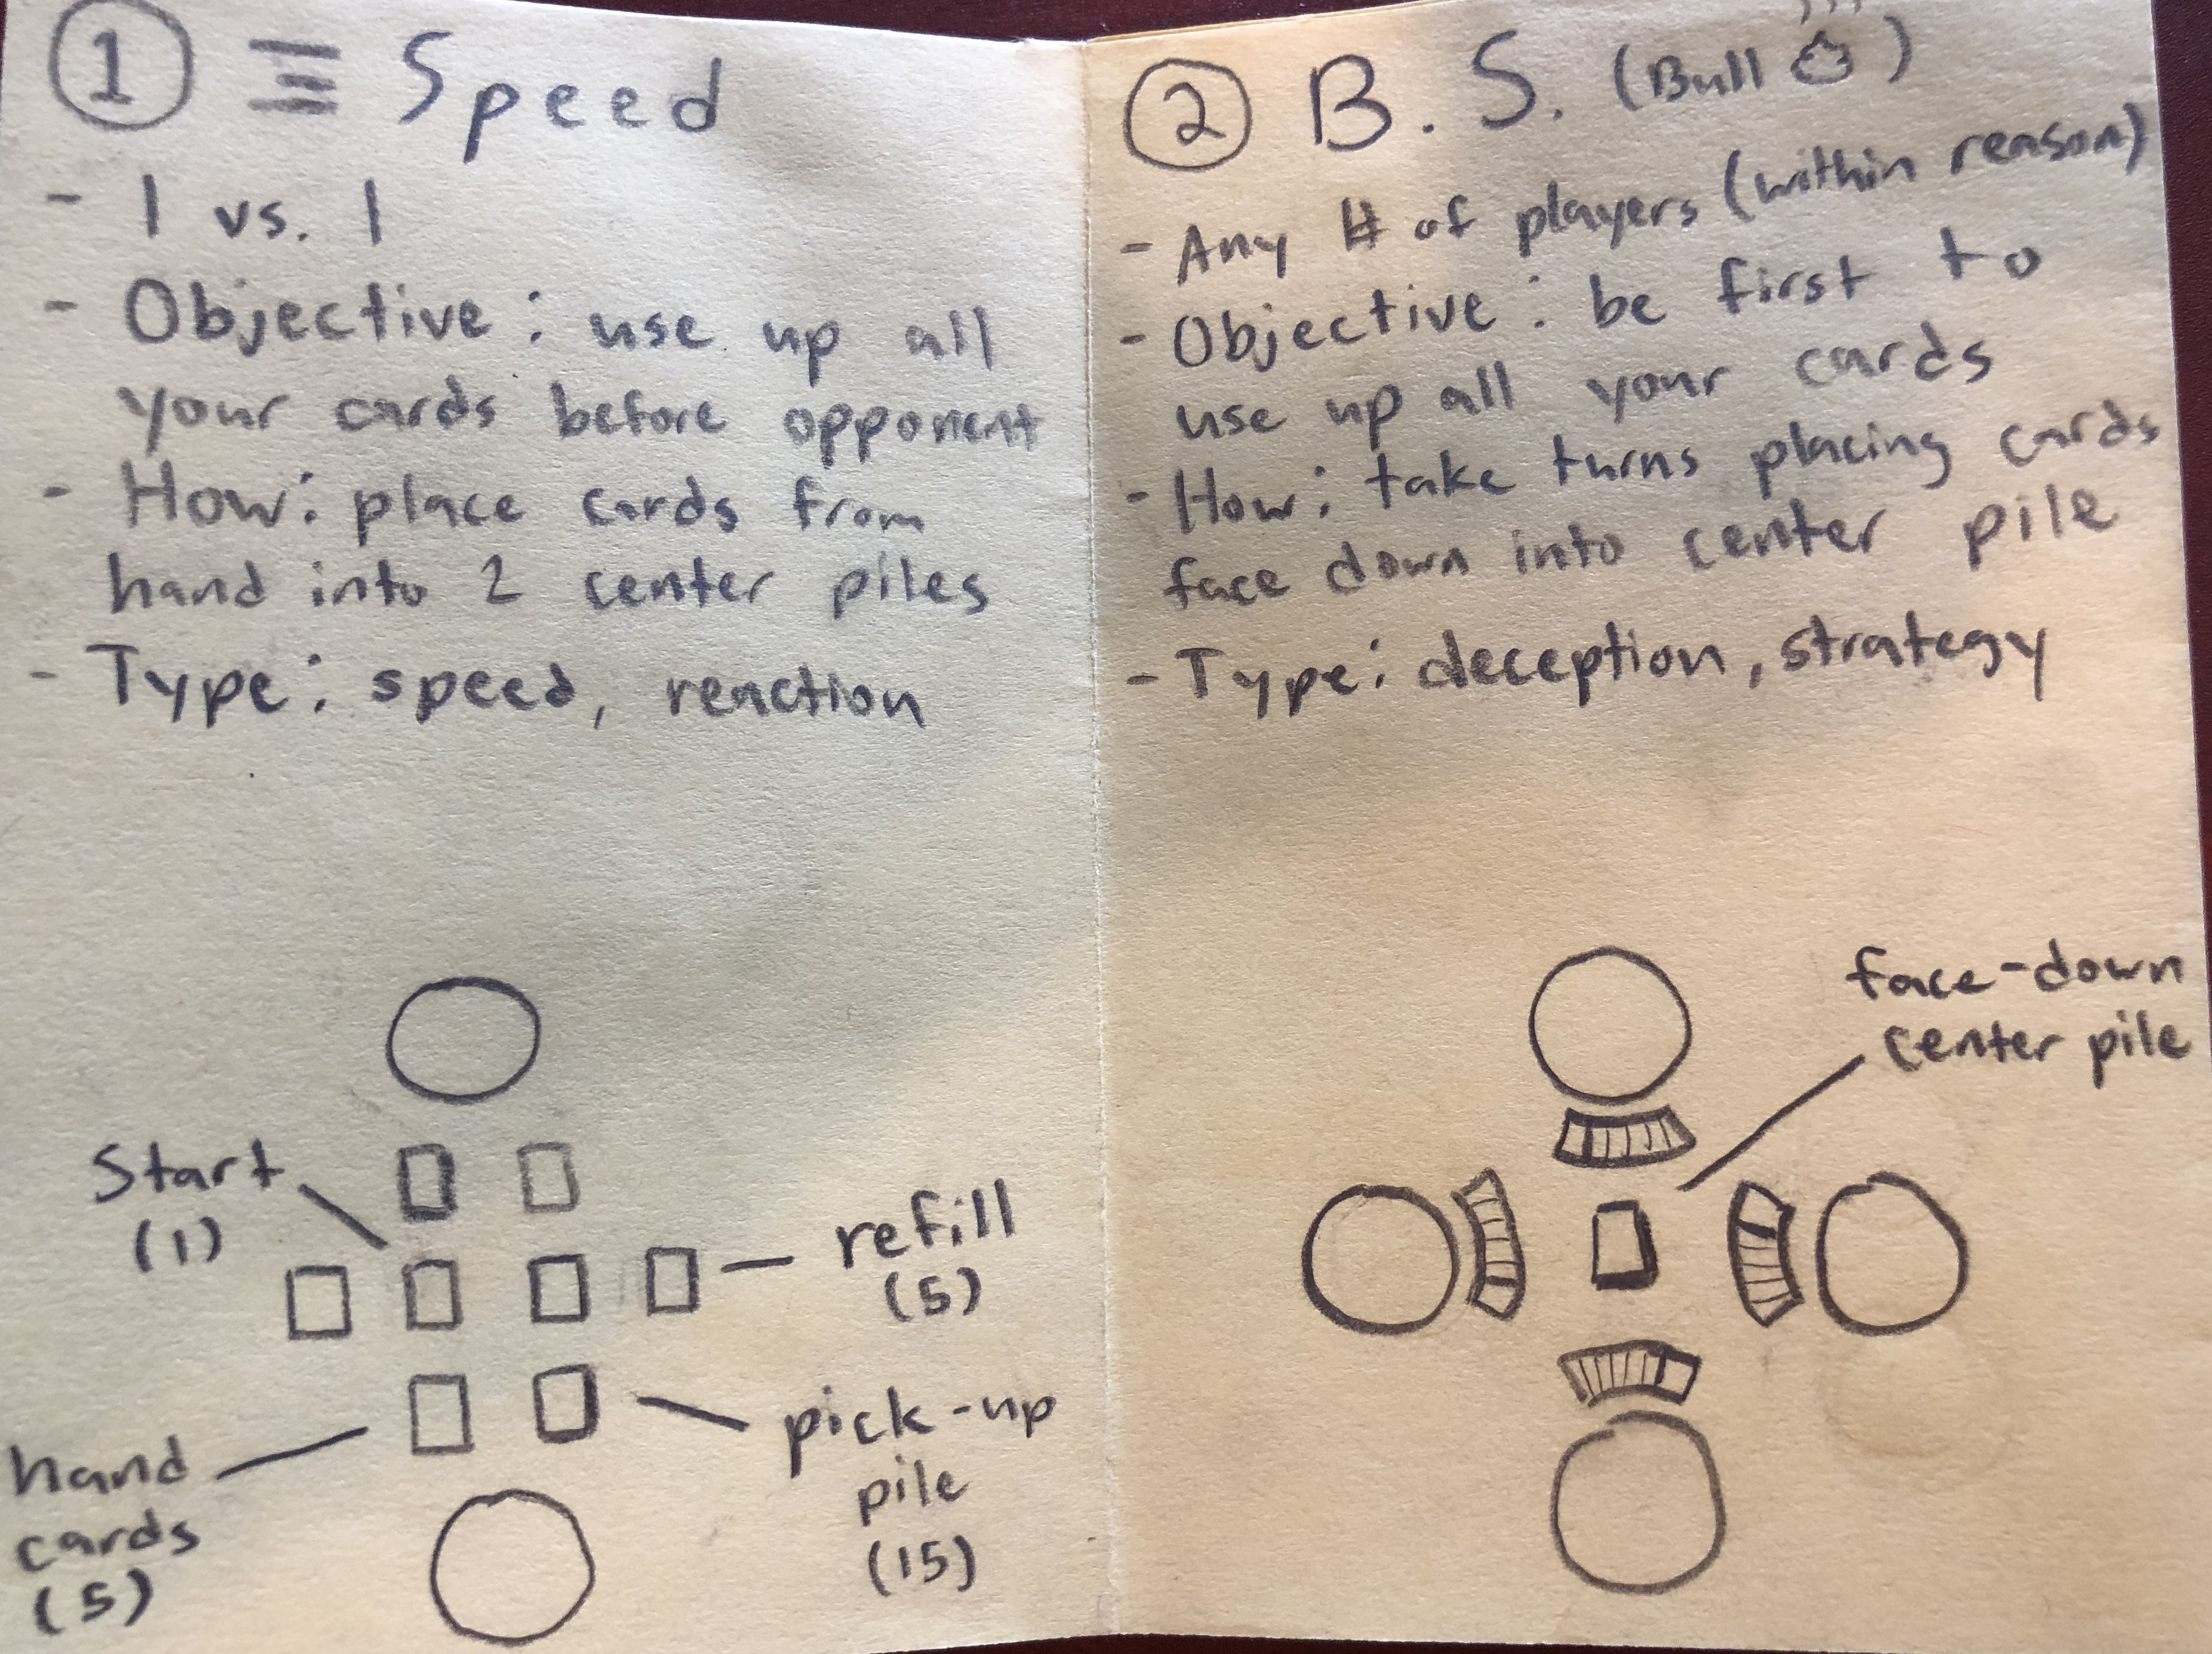 1 Speed
- 1 vs. 1
- Objective: use up all
your cards before opponent
- How: place cards from
hand into 2 center piles
- Type: speed, reaction
Start
(1)
refill
(5)
hand
cards
(5)
pick-up
pile
(15)
2 B. S. (Bull 💩)
- Any # of players (within reason)
- Objective: be first to
use up all your cards
- How: take turns placing cards
face down into center pile
- Type: deception, strategy
face-down
center pile